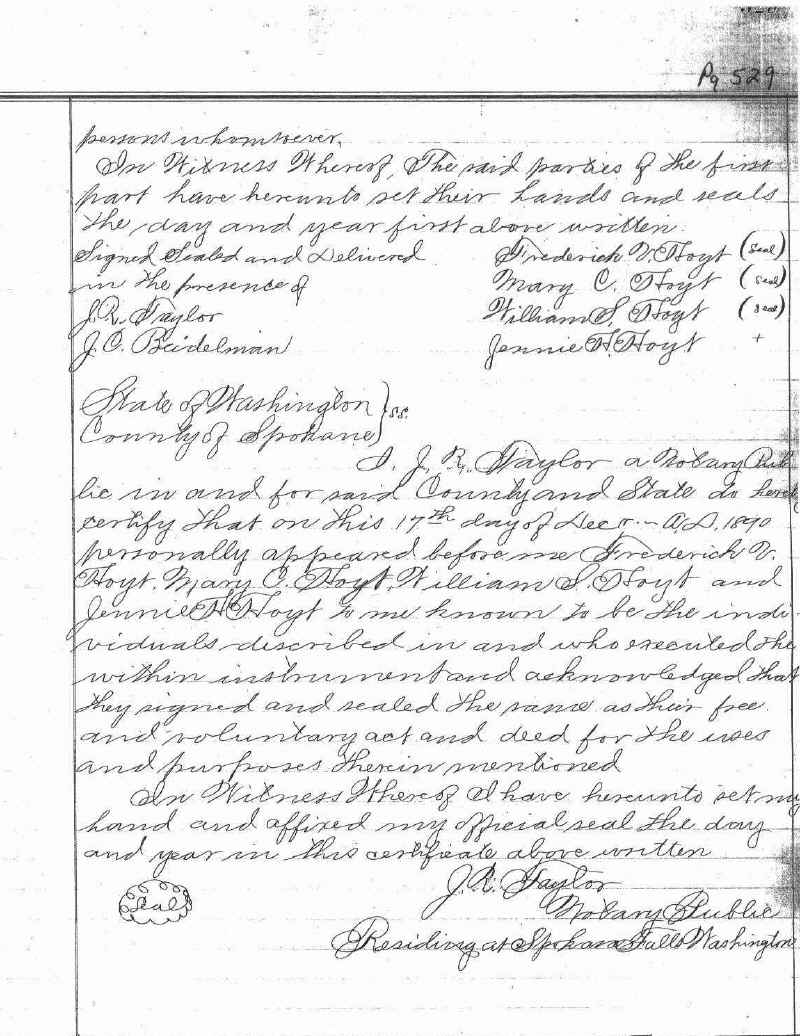 Pg 529
persons whomsoever.
In Witness Whereof, The said parties of the first
part have hereunto set their hands and seals
the day and year first above written.
Signed Sealed and Delivered Frederick V. Hoyt (seal)
in the presence of Mary C. Hoyt (seal)
J.R. Taylor William S. Hoyt (seal)
J.C. Beidelman Jennie H. Hoyt +
State of Washington } ss.
County of Spokane
I, J. R. Taylor a Notary Pub
lic in and for said County and State do hereby
certify that on this 17th day of Decr. A.D. 1890
personally appeared before me Frederick V.
Hoyt, Mary C. Hoyt, William S. Hoyt and
Jennie H Hoyt to me known to be the indi-
viduals described in and who executed the
within instrument and acknowledged that
they signed and sealed the same as their free
and voluntary act and deed for the uses
and purposes therein mentioned
In Witness Whereof I have hereunto set my
hand and affixed my official seal the day
and year in this certificate above written
J. R. Taylor
(Seal) Notary Public
Residing at Spokane Falls Washington